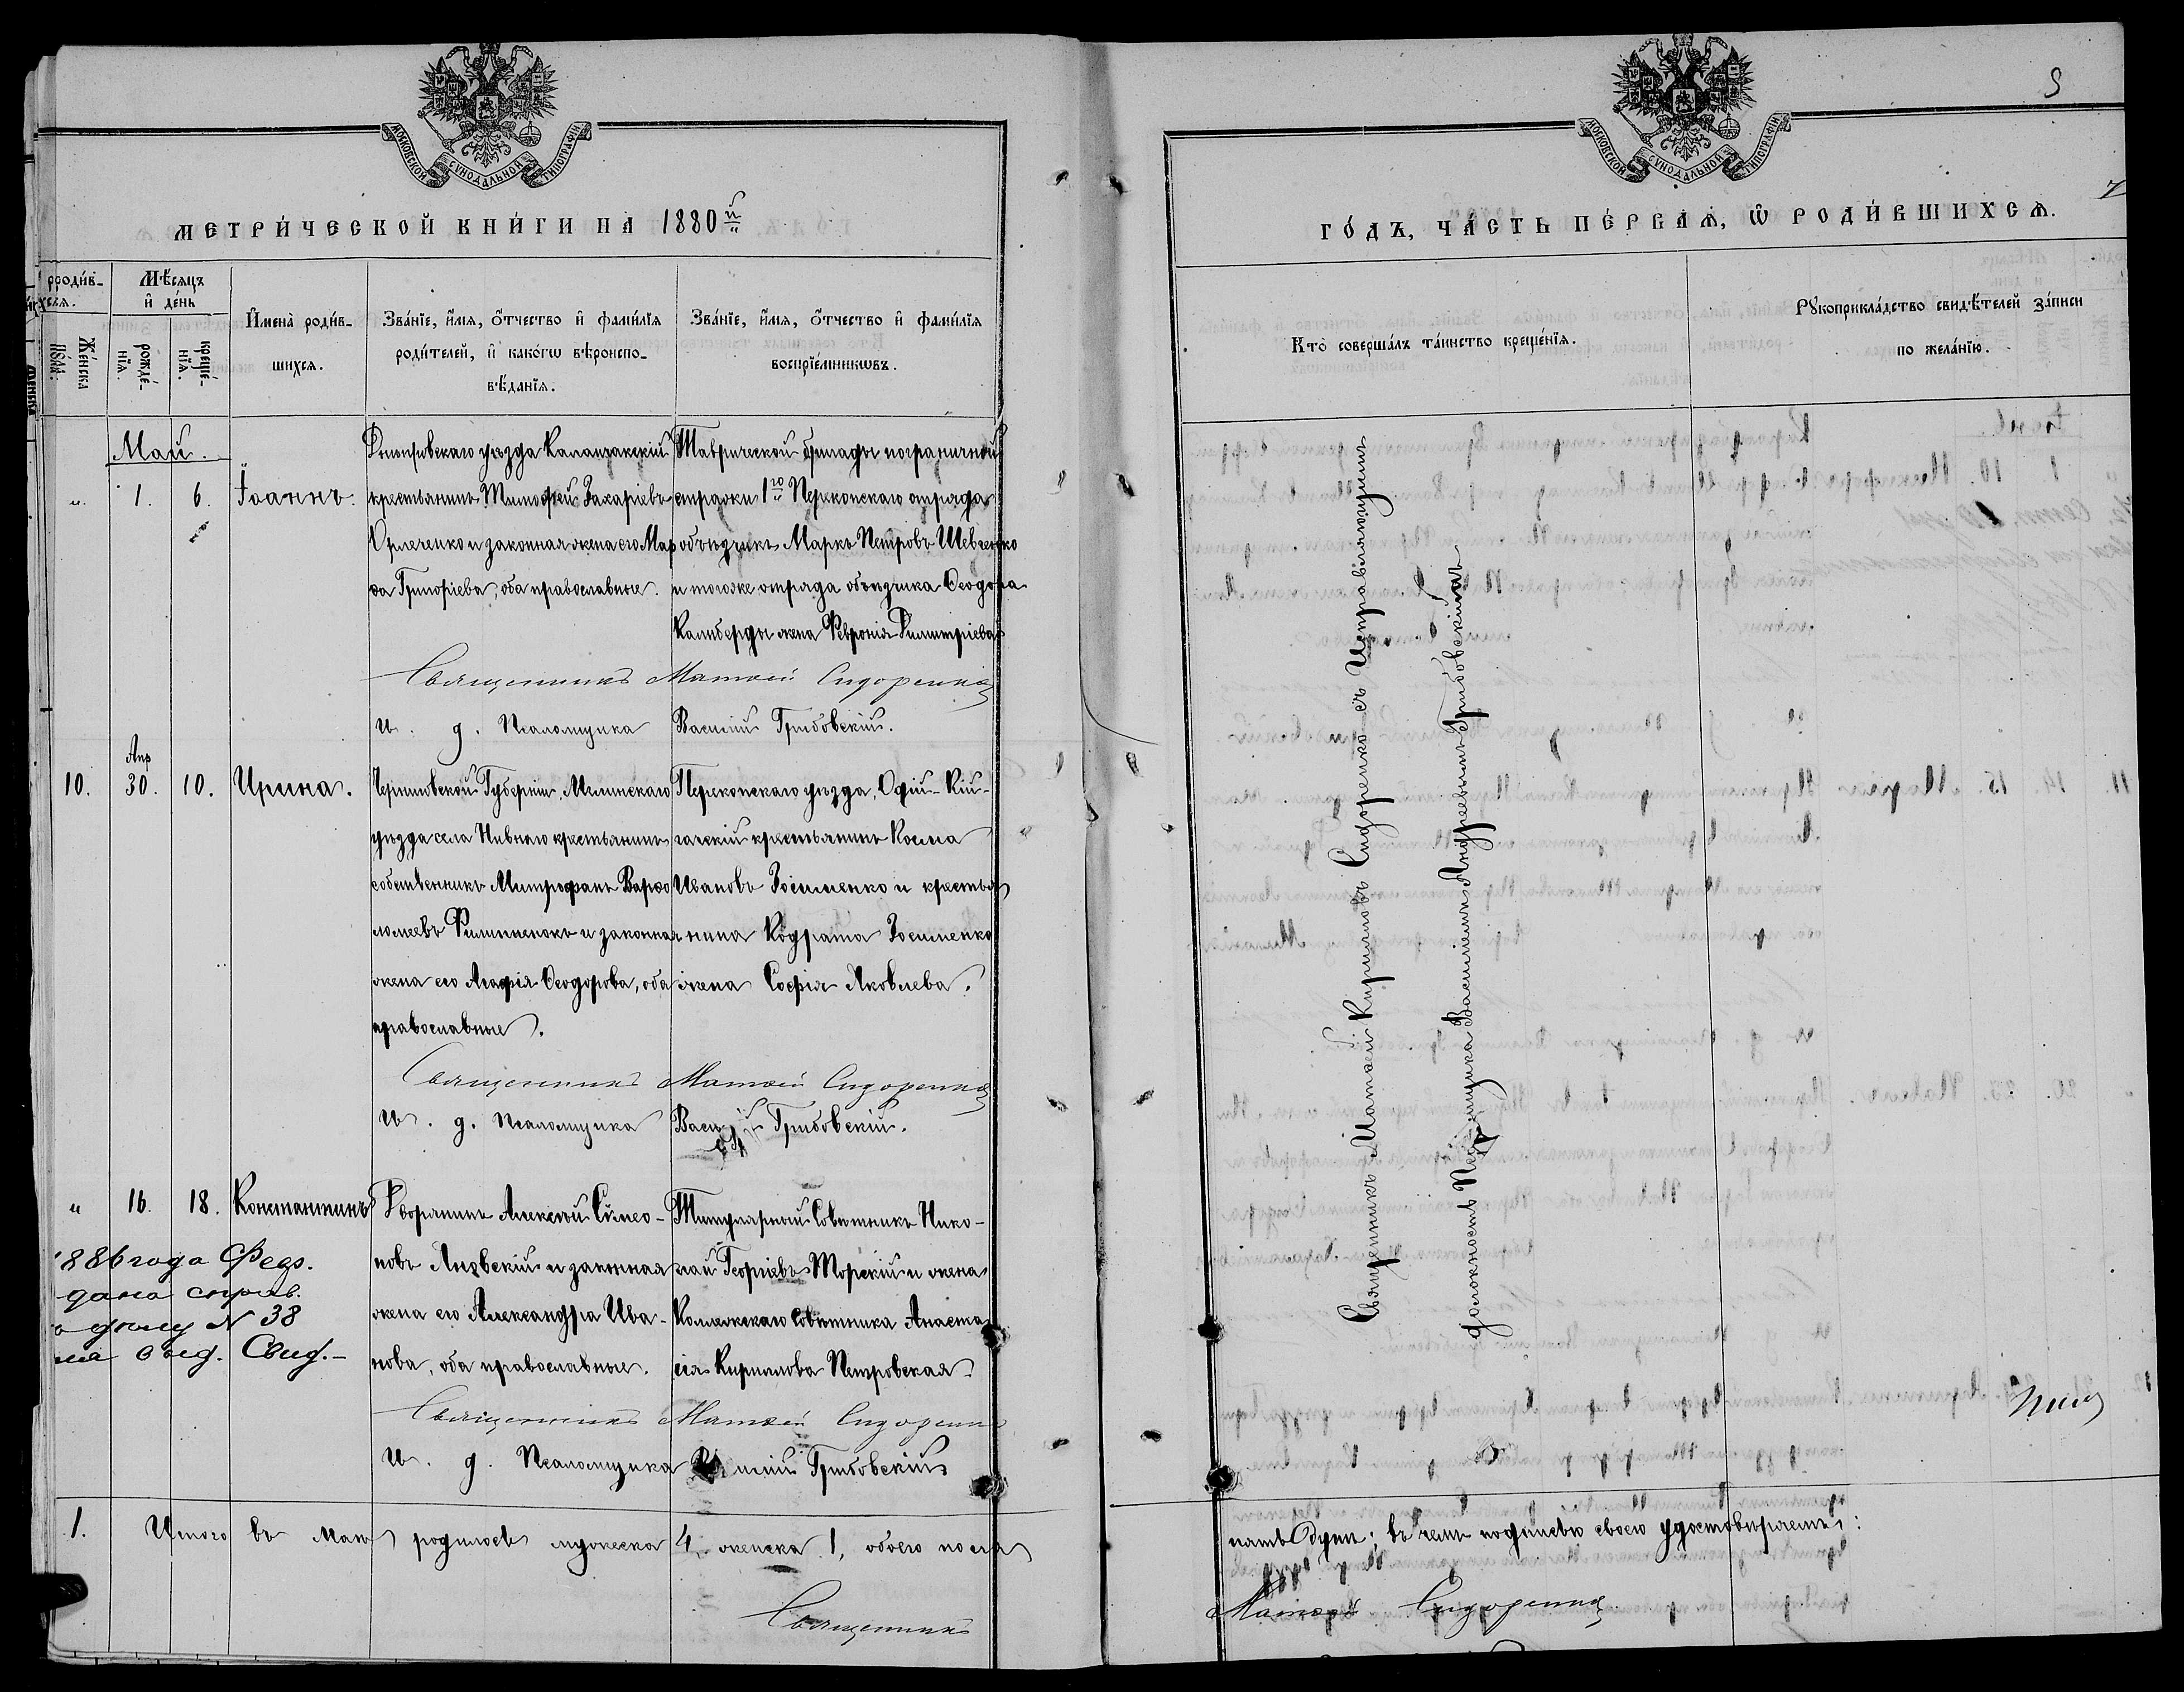 МОСКОВСКОЙ СѴНОДАЛЬНОЙ ТИПОГРАФІИ.
МЕТРИ́ЧЕСКОЙ КНИ́ГИ НА 1880й
рроди́в-
хсѧ.
Же́нска
по́ла.
Мѣ́сяцъ
и҆ де́нь
рожде́-
нїѧ.
креще́-
нїѧ.
И҆мена̀ роди́в-
шихсѧ.
Зва́нїе, и҆́мѧ, ѻ҆́тчество и҆ фами́лїѧ
роди́телей, и҆ како́гѡ вѣроиспо-
вѣ́данїѧ.
Зва́нїе, и҆́мѧ, ѻ҆́тчество и҆ фами́лїѧ
воспрїе́мникѡвъ.
Май.
" 1. 6. Іоаннъ.
Днѣпровскаго уѣзда Каланчакскій
крестьянинъ Тимоѳей Захаріевъ
и законная жена его Мар
ѳа Григоріева, оба православные.
Таврической бригады пограничной
стражи 1го Перекопскаго отряда
объѣздчикъ Маркъ Петровъ Шевченко
и тогоже отряда объѣздчика Ѳеодора
Калиберды жена Февронія Димитріева
Священникъ Матѳей Сидоренко
И. д. Псаломщика Василій Грибовскій.
Апр
10. 30. 10. Ирина.
Черниговской Губерніи, Мглинскаго
уѣзда села Нивнаго крестьянинъ
собственникъ Митрофанъ Варѳо
ломеевъ Филипенокъ и законная
жена его Агафія Ѳеодорова, оба
православные.
Перекопскаго уѣзда, Одій-Кій-
гатскій крестьянинъ Косма
Ивановъ Зосименко и крестья
нина Кодрата Зосименко
жена Софія Яковлева.
Священникъ Матѳей Сидоренко
И. д. Псаломщика Василій Грибовскій.
" 16. 18. Константинъ
Дворянинъ Алексій Симео-
новъ и законная
жена его Александра Ива-
нова, оба православные.
Титулярный Совѣтникъ Нико-
лай Георгіевъ Торскій и жена
Коллежскаго Совѣтника Анаста
сія Кирилова Петровская.
1886 года Февр.
дана справ.
N 38
Свид.-
Священникъ Матѳей Сидоренко
И. д. Псаломщика Василій Грибовскій
1. Итого въ Маѣ родилось мужеска 4, женска 1, обоего пола
Священникъ
9
7
МОСКОВСКОЙ СѴНОДАЛЬНОЙ ТИПОГРАФІИ.
ГО́ДЪ, ЧА́СТЬ ПЕ́РВАѦ, Ѽ РОДИ́ВШИХСѦ.
Кто̀ соверша́лъ та́инство креще́нїѧ.
Рꙋкоприкла́дство свидѣ́телей за́писи
по жела́нїю.
Священникъ Матѳей Кириловъ Сидоренко съ Исправляющимъ
должность Псаломщика Василіемъ Андреевымъ Грибовскимъ
пять душъ; въ чемъ подписью своею удостовѣряемъ:
Матѳей Сидоренко